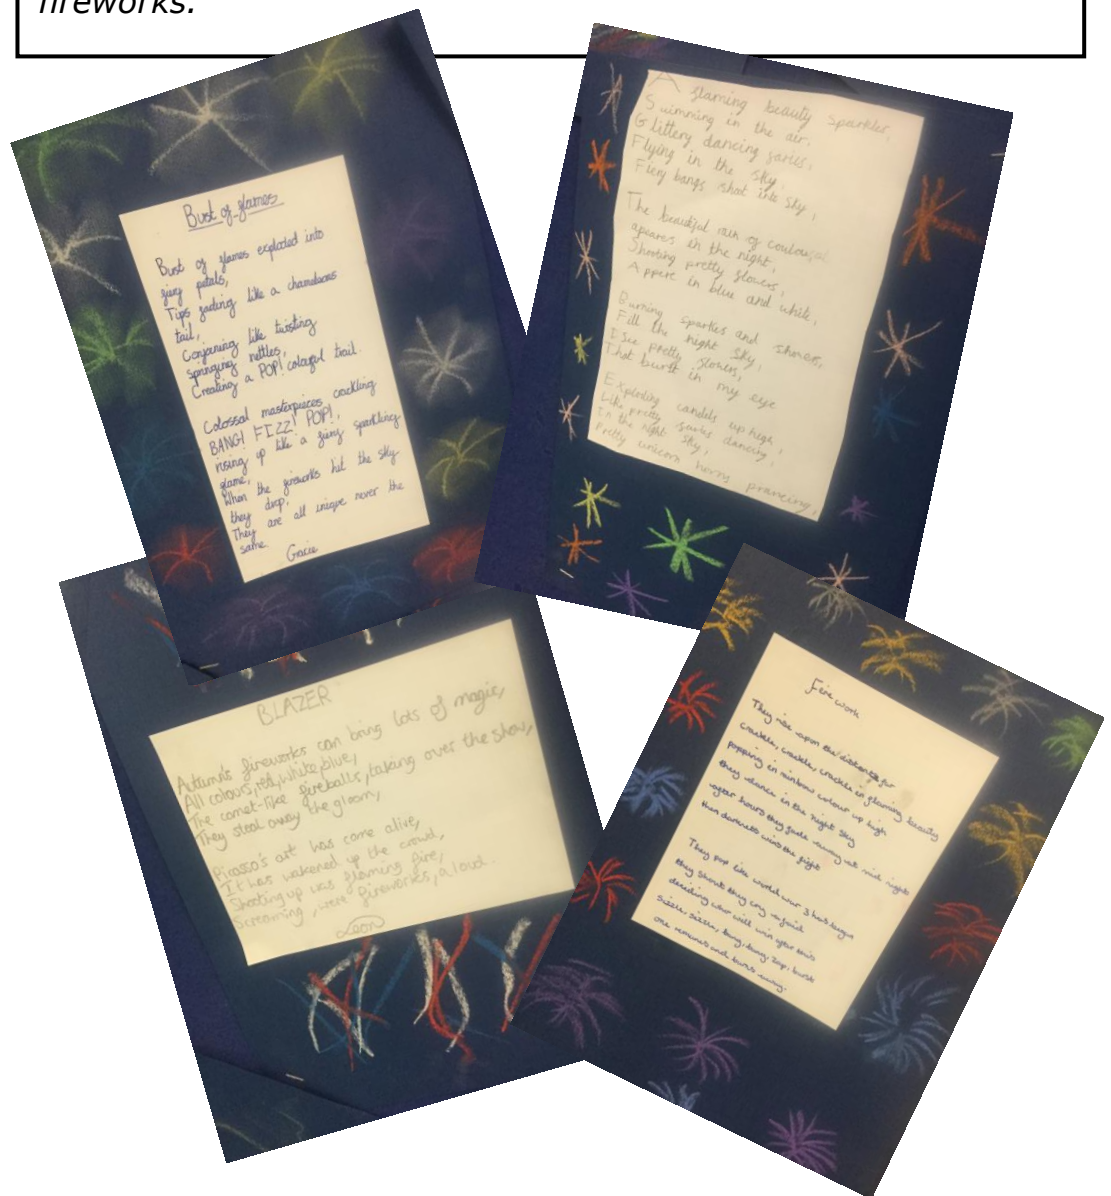 fireworks.
Bust of flames
Bust of flames exploded into
firey petals,
Tips farting like a chameleons
tail,
Conjoning like twisting
springing nettles,
Creating a POP! colourful trail.
Colossal masterpieces crackling
BANG! FIZZ! POP!,
rising up like a firey sparkling
flame,
When the fireworks hit the sky
they drop,
They are all unique never the
same.
Gracie
A flaming beauty sparkler,
Swimming in the air,
Glittery dancing faries,
Flying in the sky,
Fiery bangs shot into sky,
The beautiful rain of
apeares in the night,
Shooting pretty flowers,
Appere in blue and white,
Burning sparkles and
Fill the night sky,
I see pretty flowers,
That burst in my eye
Exploding candels up high,
Like pretty faries dancing,
In the night sky,
Pretty unicorn horns prancing,
BLAZER
Autumn's fireworks can bring lots of magic,
All colours, red, white, blue,
The comet-like fireballs, taking over the show,
They steal away the gloom,
Picasso's art has come alive,
It has wakened up the crowd,
Shooting up was flaming fire,
Screaming, were fireworks, aloud.
Leon
Fire work
They rise upon the distance far
crackle, crackle, crackle in flaming beauty
popping in rainbow colour up high
they dance in the night sky
after hours they fade away at mid night
then darkness wins the fight
They pop like world war 3 has begun
they shout they cry
deciding who will win after this
sizzle, sizzle, bang, bang, zap, burst
one remains and bursts away.